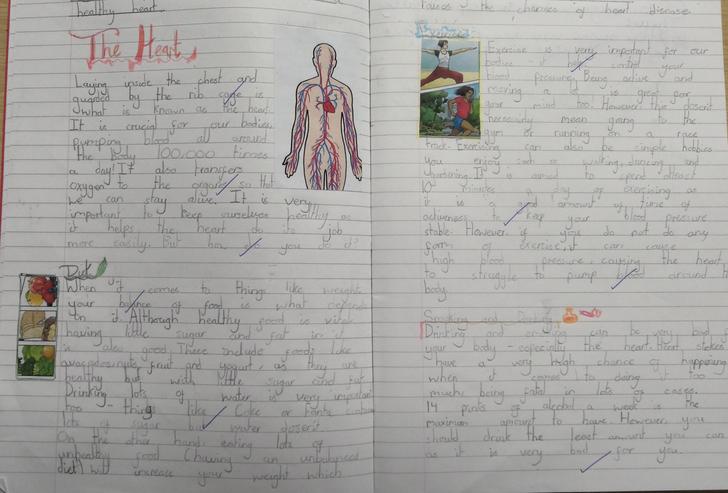 healthy heart
The Heart
Laying inside the chest and
guarded by the rib cage is
what is known as the heart.
It is crucial for our bodies,
pumping blood all around
the body 100,000 times
a day! It also transfers
oxygen to the organs so that
we can stay alive. It is very
important to keep ourselves healthy as
it helps the heart do its job
more easily. But how do you do it?
Diet
When it comes to things like weight
your balance of food is what depends
on it. Although healthy food is vital
having little sugar and fat in it
is also good. These include foods like
avacados, nuts, fruit and yogurt, as they are
healthy but with little sugar and fat.
Drinking lots of water is very important
too - things like Coke or Fanta contain
lots of sugar but water doesnt.
On the other hand, eating lots of
unhealthy food (having an unbalanced
diet) will increase your weight which
raises the chances of heart disease
Exercise
Exercise is very important for our
bodies - it your
blood pressure. Being active and
moving a lot is great for
your mind too. However this doesnt
necessarily mean going to the
gym or running on a race
track. Exercising can also be simple hobbies
you enjoy such as walking, dancing and
It is to spend atleast
10 minutes a day of exercising as
it is a good amount of time of
activeness to keep your blood pressure
stable. However, if you do not do any
form of exercise, it can cause
high blood pressure, causing the heart
to struggle to pump blood around the
body.
Smoking and Drinking
Drinking and smoking can be very bad
your body - especially the heart. Heart strokes
have a very high chance of happening
when it comes to doing it too
much, being fatal in lots of cases.
14 pints of alcohol a week is the
maximum amount to have. However, you
should drink the least amount you can
as it is very bad for you.